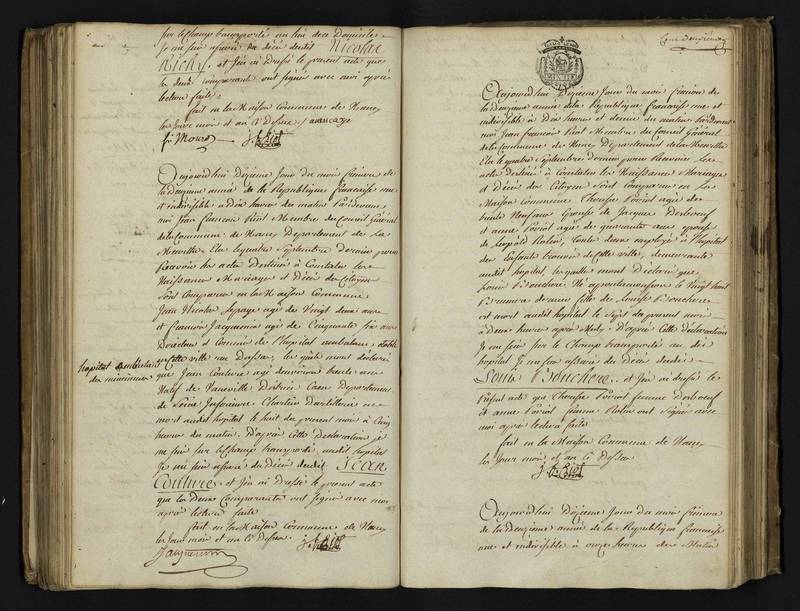 sur le Champ transporté au lieu de ce Domicile
Je me suis assuré du décès dudit Nicolas
Richy, et J'en ai Dressé le présent acte que
les deux comparants ont signé avec moi après
lecture faite
fait en la Maison Commune de Nancy
les Jours mois et an Ci Dessus
j. f. Piot
Aujourdhui Dixieme Jour du mois frimaire de
la Deuxieme année de la Republique francaise une
et indivisible à Dix heures du matin Pardevant
moi Jean francois Piot Membre du Conseil Général
de la Commune de Nancy Departement de La
Meurthe Elu le quatre Septembre Dernier pour
Recevoir les actes Destinés à Constater les
Naissance Mariages et Décès des Citoyens
Sont Comparus en la Maison Commune
Jean Nicolas Lepage agé de Vingt deux ans
et francois Jacquemin agé de Cinquante Six ans
Directeur et Commis de l'hopital ambulant établi
en Cette ville au Dessus, lesquels mont declaré
hopital ambulant
que Jean Couture agé d'environ trente ans
Natif de Vauville District Caen Departement
de Seine Inferieure Chartier D'artillerie est
mort audit hopital le huit du présent mois à Cinq
heures du matin. D'après Cette Declaration je
me suis sur le champ transporté audit hopital
Je me suis assuré du Décès dudit Jean
Couture et J'en ai Dressé le présent acte
que les Deux Comparants ont signé avec moi
après lecture faite
fait en la Maison Commune de Nancy
les Jour mois et an Ci Dessus
Jacquemin j. f. Piot
Aujourdhui Dixieme Jour du mois frimaire de
la Deuxieme année de la Republique francaise une et
indivisible à Dix heures et demie du matin Pardevant
moi Jean francois Piot Membre du Conseil Général
de la Commune de Nancy Departement de la Meurthe
Elu le quatre Septembre dernier pour Recevoir les
actes destinés à Constater les Naissances Mariages
et Décès des Citoyens Sont Comparus en La
Maison Commune Therese Poirot agée de
trente Neuf ans Epouse de Jacques Derboeuf
et anne Poirot agée de quarante ans epouse
de Leopold Rolin, toutes deux employées à l'hopital
des Enfants trouvés de Cette ville, demeurante
audit hopital, lesquelles mont Declaré que
Louise Bouchere
Brumaire dernier fille de Louise Bouchere
est morte audit hopital le Sept du présent mois
à Deux heures après Midy. D'après Cette déclaration
Je me suis sur le Champ transporté au dit
hopital Je me suis assuré du Décès de ladite
Louise Bouchere, et J'en ai dressé le
Présent acte que Therese Poirot femme Derboeuf
et anne Poirot femme Rolin ont Signé avec
moi après lecture faite
fait en la Maison Commune de Nancy
les Jour mois et an Ci Dessus
j. f. Piot
Aujourdhui Dixieme Jour du mois frimaire
de la Deuxieme année de la Republique francaise
une et indivisible à onze heures du Matin